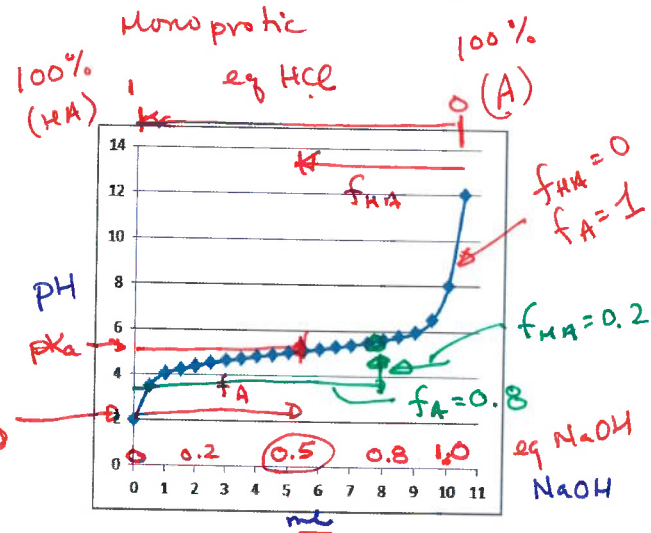 Monoprotic
100%
(HA)
1
eq HCl
100%
0
(A)
14
12
10
8
6
4
2
0
pH
pKa
fHA
fHA=0
fA=1
fHA=0.2
fA
fA=0.8
0 0.2 0.5 0.8 1.0 eq NaOH
0 1 2 3 4 5 6 7 8 9 10 11 NaOH
ml